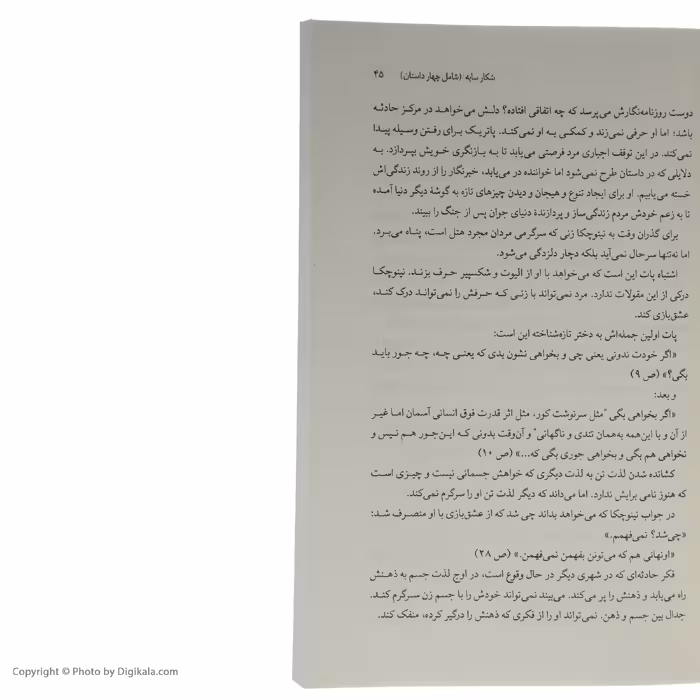 شکار سایه (شامل چهار داستان) ۴۵
دوست روزنامه‌نگارش می‌پرسد که چه اتفاقی افتاده؟ دلش می‌خواهد در مرکز حادثه
باشد؛ اما او حرفی نمی‌زند و کمکی به او نمی‌کند. پاتریک برای رفتن وسیله پیدا
نمی‌کند. در این توقف اجباری مرد فرصتی می‌یابد تا به بازنگری خویش بپردازد. به
دلایلی که در داستان طرح نمی‌شود اما خواننده در می‌یابد، خبرنگار را از روند زندگی‌اش
خسته می‌یابیم. او برای ایجاد تنوع و هیجان و دیدن چیزهای تازه به گوشهٔ دیگر دنیا آمده
تا به زعم خودش مردم زندگی‌ساز و پردازندهٔ دنیای جوان پس از جنگ را ببیند.
برای گذران وقت به نینوچکا زنی که سرگرمی مردان مجرد هتل است، پناه می‌برد.
اما نه‌تنها سرحال نمی‌آید بلکه دچار دلزدگی می‌شود.
اشتباه پات این است که می‌خواهد با او از الیوت و شکسپیر حرف بزند. نینوچکا
درکی از این مقولات ندارد. مرد نمی‌تواند با زنی که حرفش را نمی‌تواند درک کند،
عشق‌بازی کند.
پات اولین جمله‌اش به دختر تازه‌شناخته این است:
«اگر خودت ندونی یعنی چی و بخواهی نشون بدی که یعنی چه، چه جور باید
بگی؟» (ص ۹)
و بعد:
«اگر بخواهی بگی "مثل سرنوشت کور، مثل اثر قدرت فوق انسانی آسمان اما غیر
از آن و با این‌همه به‌همان تندی و ناگهانی" و آن‌وقت بدونی که این‌جور هم نیس و
نخواهی هم بگی و بخواهی جوری بگی که...» (ص ۱۰)
کشانده شدن لذت تن به لذت دیگری که خواهش جسمانی نیست و چیزی است
که هنوز نامی برایش ندارد. اما می‌داند که دیگر لذت تن او را سرگرم نمی‌کند.
در جواب نینوچکا که می‌خواهد بداند چی شد که از عشق‌بازی با او منصرف شد:
«چی‌شد؟ نمی‌فهمم.»
«اونهانی هم که می‌تونن بفهمن نمی‌فهمن.» (ص ۲۸)
فکر حادثه‌ای که در شهری دیگر در حال وقوع است، در اوج لذت جسم به ذهنش
راه می‌یابد و ذهنش را پر می‌کند. می‌بیند نمی‌تواند خودش را با جسم زن سرگرم کند.
جدال بین جسم و ذهن. نمی‌تواند او را از فکری که ذهنش را درگیر کرده، منفک کند.
Copyright © Photo by Digikala.com